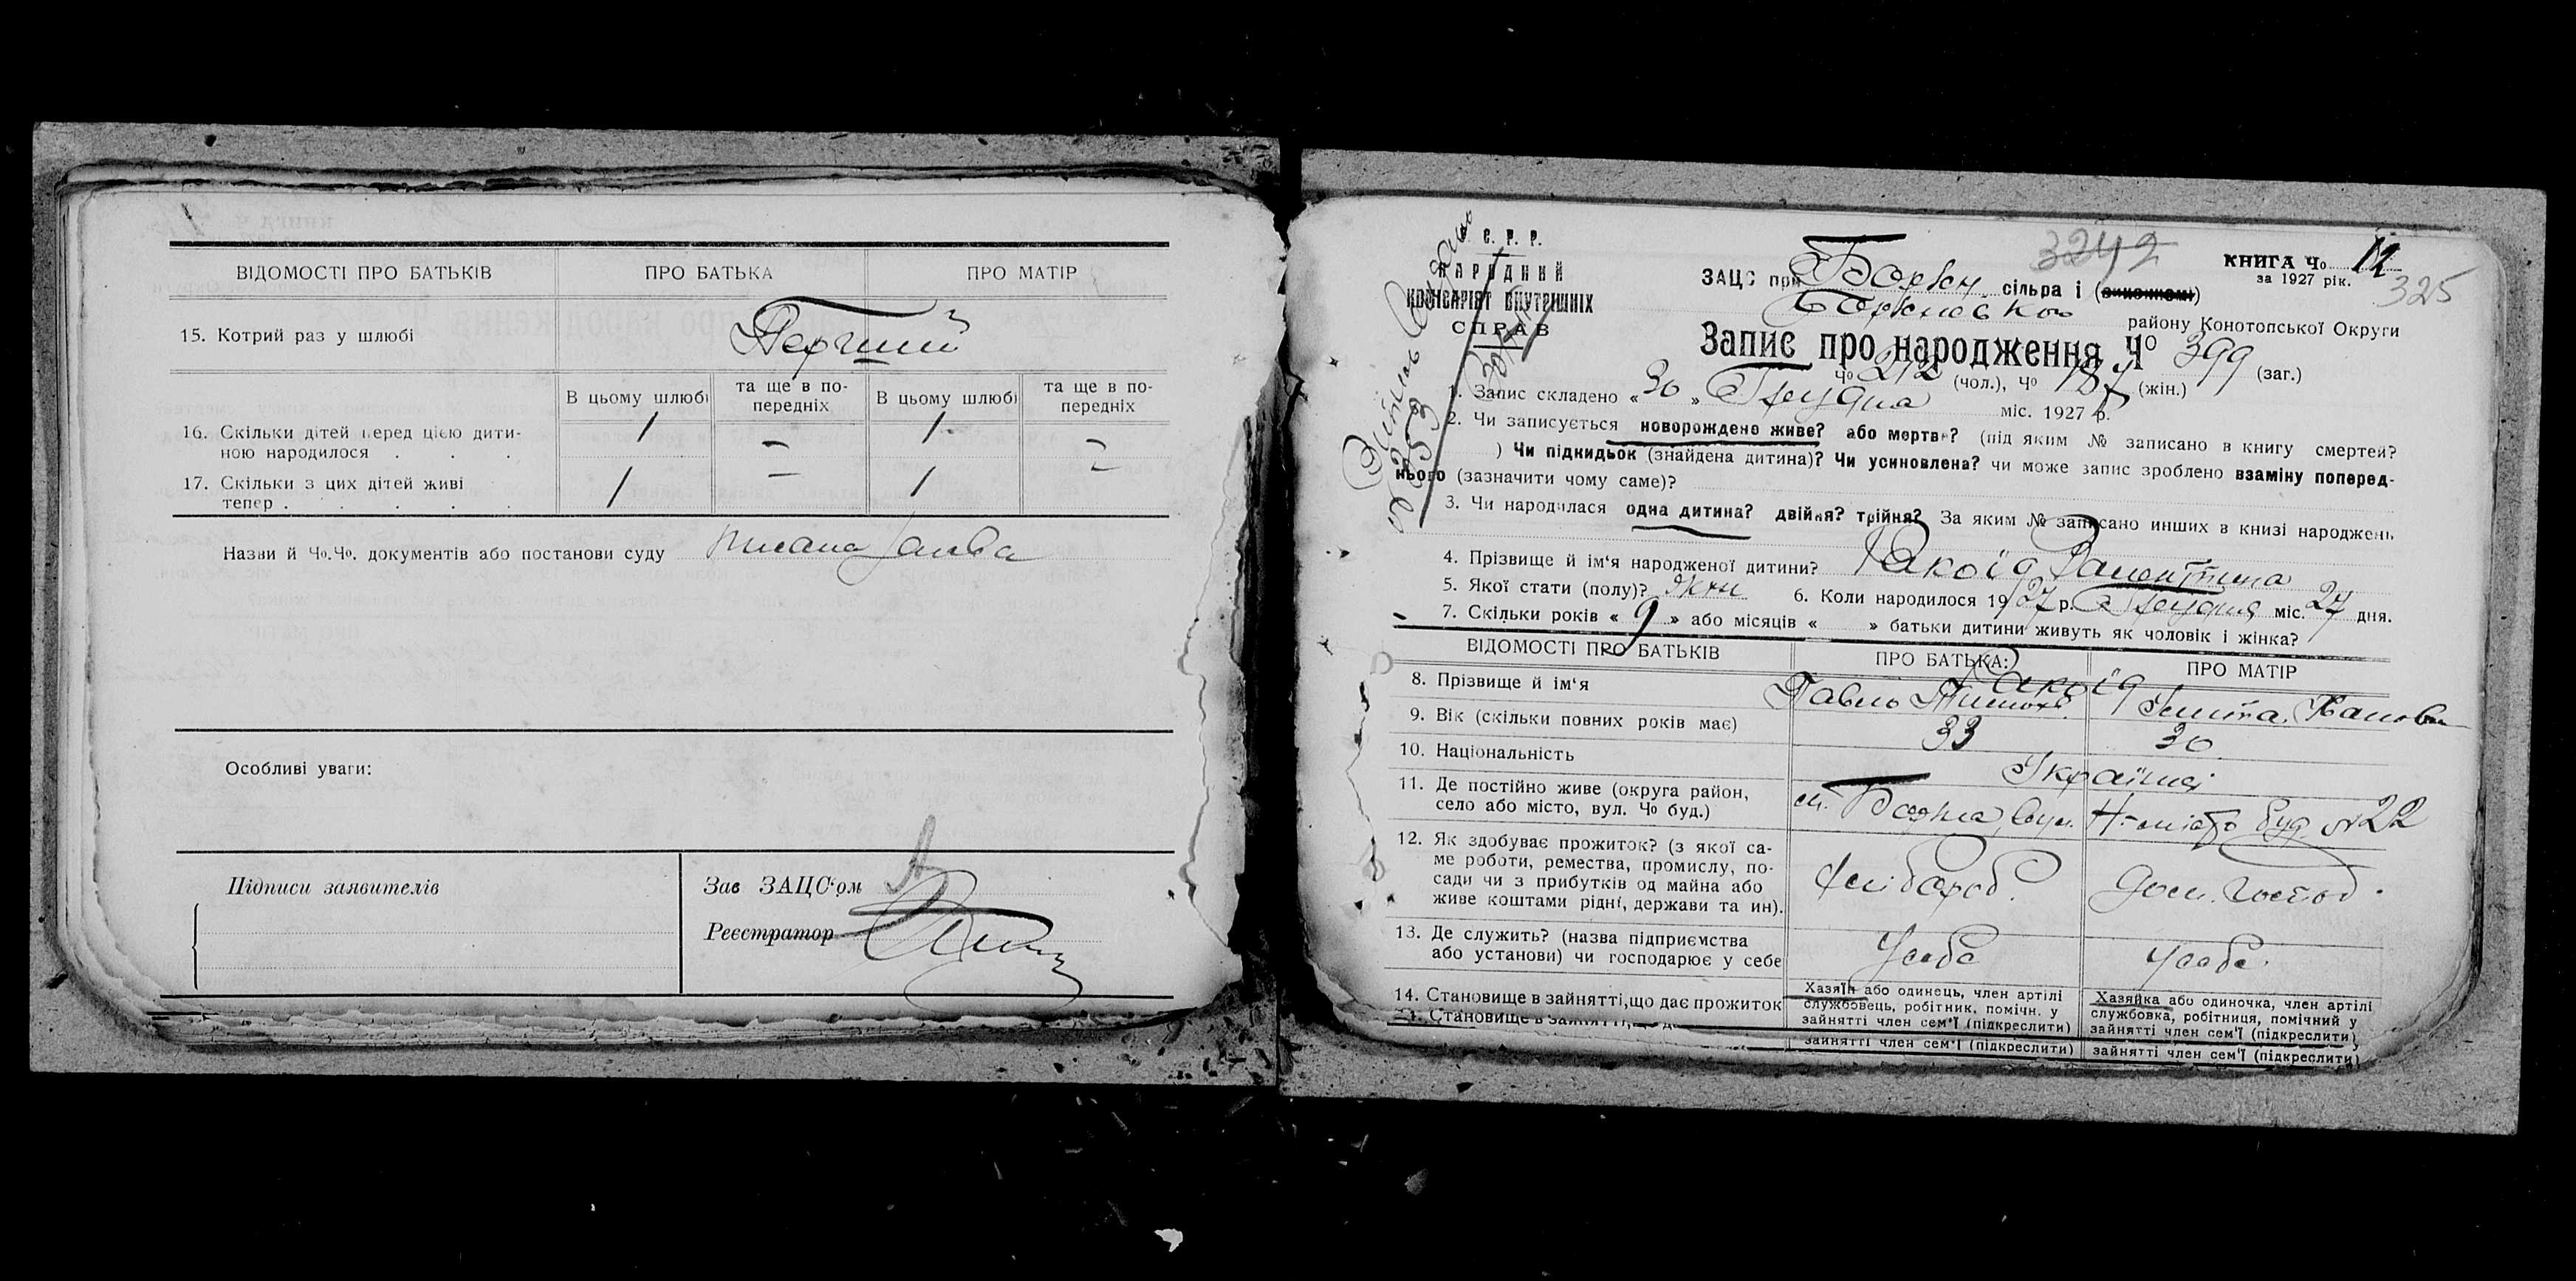 ВІДОМОСТІ ПРО БАТЬКІВ ПРО БАТЬКА ПРО МАТІР
15. Котрий раз у шлюбі Перший
В цьому шлюбі та ще в по-передніх В цьому шлюбі та ще в по-передніх
16. Скільки дітей перед цією дити-
ною народилося . . . 1 – 1 –
17. Скільки з цих дітей живі
тепер . . . . . 1 – 1 –
Назви й Ч.о.Ч.о. документів або постанови суду писана заява
Особливі уваги:
Підписи заявителів
Зав ЗАЦС'ом
Реєстратор
С. Р. Р.
НАРОДНИЙ
КОМІСАРІЯТ ВНУТРІШНІХ
СПРАВ
3242
КНИГА Ч.о. 12
за 1927 рік.
325
ЗАЦС при Борзн. сільра і (виконкомі)
Борзнської району Конотопської Округи
Запис про народження Ч.о. 399 (заг.)
Ч.о. 212 (чол.), Ч.о. 187 (жін.)
1. Запис складено « 30 » Грудня міс. 1927 р.
2. Чи записується новорождене живе? або мертве? (під яким № записано в книгу смертей?
) Чи підкидьок (знайдена дитина)? Чи усиновлена? чи може запис зроблено взаміну поперед-
нього (зазначити чому саме)?
3. Чи народилася одна дитина? двійня? трійня? За яким № записано инших в книзі народжень
4. Прізвище й ім'я народженої дитини? Ракоїд Валентина
5. Якої стати (полу)? жін 6. Коли народилося 1927 р. Грудня міс. 27 дня.
7. Скільки років « 9 » або місяців « » батьки дитини живуть як чоловік і жінка?
ВІДОМОСТІ ПРО БАТЬКІВ ПРО БАТЬКА: ПРО МАТІР
Ракоїд
8. Прізвище й ім'я Павло Тимох. Івановна
9. Вік (скільки повних років має) 33 30
10. Національність Українці
11. Де постійно живе (округа район,
село або місто, вул. Ч.о. буд.) м. Борзна, вул. буд. №22
12. Як здобуває прожиток? (з якої са-
ме роботи, ремества, промислу, по-
сади чи з прибутків од майна або
живе коштами рідні, держави та ин). хлібороб. дом. господ.
13. Де служить? (назва підприємства
або установи) чи господарює у себе У себе У себе.
14. Становище в зайнятті, що дає прожиток
Хазяїн або одинець, член артілі
службовець, робітник, помічн. у
зайнятті член сем'ї (підкреслити)
Хазяйка або одиночка, член артілі
службовка, робітниця, помічний у
зайнятті член сем'ї (підкреслити)
зайнятті член сем'ї (підкреслити) зайнятті член сем'ї (підкреслити)